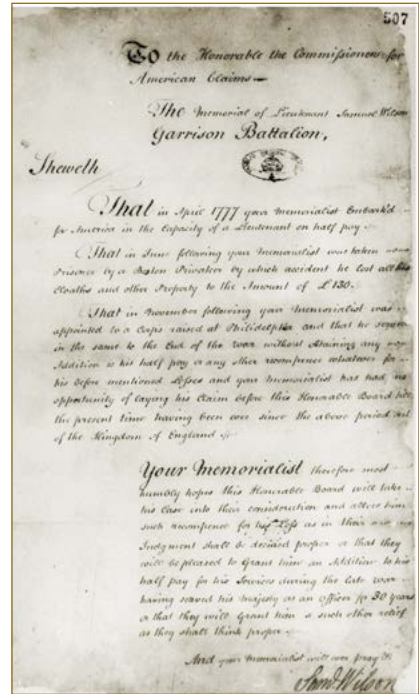 507
To the Honorable the Commissioners for
American Claims
The Memorial of Lieutenant Samuel Wilson
Garrison Battalion,
Sheweth
That in April 1777 your Memorialist Embark'd
for America in the Capacity of a Lieutenant on half pay
That in June following your Memorialist was taken
Prisoner by a Boston Privateer by which accident he lost all his
Cloaths and other Property to the Amount of £130.
That in November following your Memorialist was
appointed to a Corps raised at Philidelphia and that he served
in the same to the End of the War without Obtaining any
Addition to his half pay or any other recompence whatever for
his before mentioned Losses and your Memorialist has had no
opportunity of laying his Claim before this Honorable Board till
the present time having been ever since the above period out
of the Kingdom of England
Your Memorialist therefore most
humbly hopes this Honorable Board will take
his Case into their consideration and allow him
such recompence for his Loss as in their
Judgment shall be deemed proper or that they
will be pleased to Grant him an Addition to his
half pay for his Services during the late War
having served his Majesty as an Officer for 30 years
or that they will Grant him such other relief
as they shall think proper
And your Memorialist will ever pray &c
Saml. Wilson